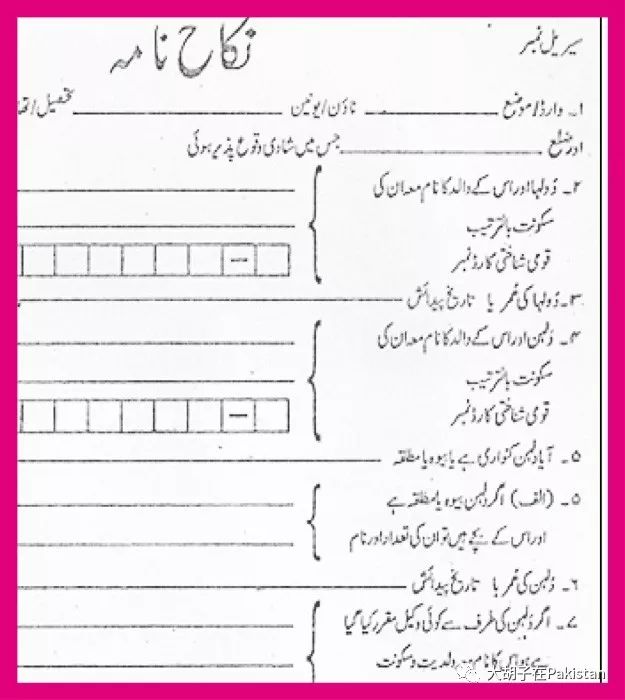 سیریل نمبر
نکاح نامہ
۱۔ وارڈ/موضع ـــــــــ ٹاؤن/یونین ـــــــــ تحصیل/تھا
اور ضلع ـــــــــ جس میں شادی وقوع پذیر ہوئی
۲۔ دُولہا اور اس کے والد کا نام معہ ان کی
سکونت بالترتیب
قومی شناختی کارڈ نمبر
۳۔ دُولہا کی عمر یا تاریخ پیدائش
۴۔ دُلہن اور اس کے والد کا نام معہ ان کی
سکونت بالترتیب
قومی شناختی کارڈ نمبر
۵۔ آیا دلہن کنواری ہے یا بیوہ یا مطلقہ
۵۔ (الف) اگر دلہن بیوہ یا مطلقہ ہے
اور اس کے بچے ہیں تو ان کی تعداد اور نام
۶۔ دُلہن کی عمر یا تاریخ پیدائش
۷۔ اگر دُلہن کی طرف سے کوئی وکیل مقرر کیا گیا
ہے تو اس کا نام مع ولدیت و سکونت
大胡子在Pakistan